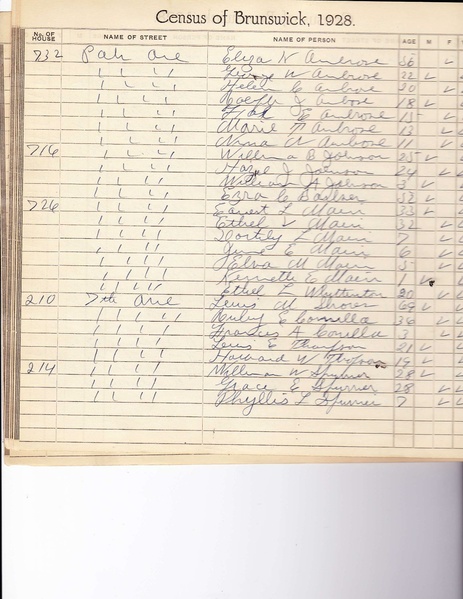 Census of Brunswick, 1928.
No. OF HOUSE NAME OF STREET NAME OF PERSON AGE M F
732 Park Ave Eliza N Ambrose 56 ✓
" " " " George W Ambrose 22 ✓
" " " " Helen C Ambrose 20 ✓
" " " " J Ambrose 18 ✓
" " " " E Ambrose 15 ✓
" " " " Marie F Ambrose 13 ✓
" " " " Nina V Ambrose 11 ✓
716 " " " " William B Johnson 25 ✓
" " " " Hazel J Johnson 24 ✓
" " " " William A Johnson 3 ✓
" " " " Ezra C 32 ✓
726 " " " " Earnest L Main 33 ✓
" " " " Ethel V Main 32 ✓
" " " " Dorothy L Main 7 ✓
" " " " June E Main 6 ✓
" " " " Melva M Main 3 ✓
" " " " Kenneth E Main 1 ✓
" " " " Ethel L Whittington 20 ✓
210 7th Ave Lewis M Shores 69 ✓
" " " " Ruby E Comella 36 ✓
" " " " Frances A Comella 3 ✓
" " " " Lewis E Thompson 21 ✓
" " " " Howard W Thompson 19 ✓
214 " " " " William W Spurrier 28 ✓
" " " " Grace E Spurrier 28 ✓
" " " " Phyllis L Spurrier 7 ✓